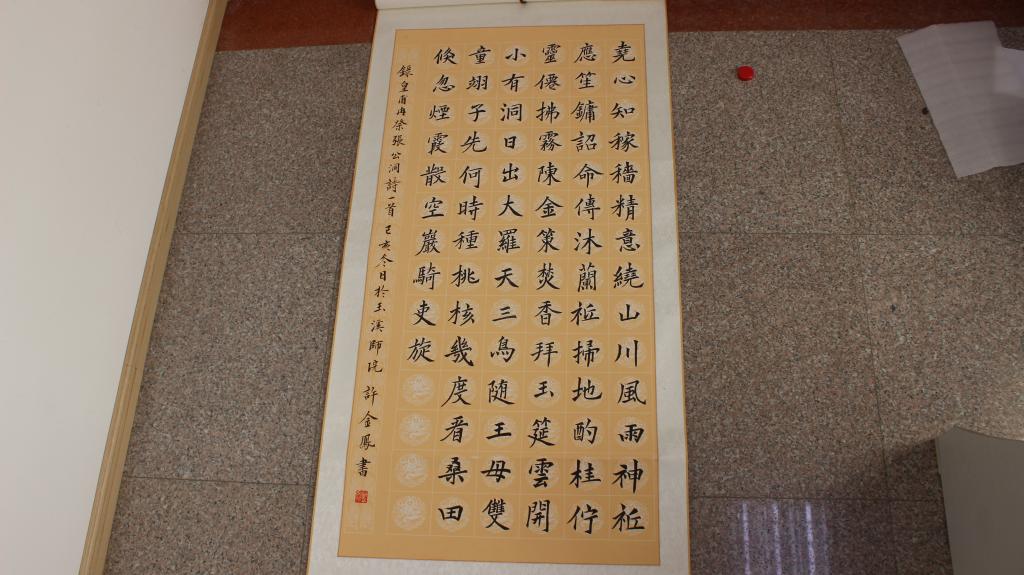 堯心知稼穡精意繞山川風雨神祇
應笙鏞詔命傳沐蘭祇掃地酌桂佇
靈僊拂霧陳金策焚香拜玉筵雲開
小有洞日出大羅天三鳥隨王母雙
童翊子先何時種桃核幾度看桑田
倏忽煙霞散空巖騎吏旋
錄皇甫冉祭張公洞詩一首 己亥冬日於玉溪師院 許金鳳書